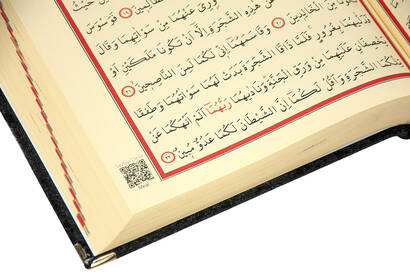 حَيْثُ
فَوَسْوَسَ
وُرِيَ عَنْهُمَا مِنْ سَوْاٰتِهِمَا وَقَالَ
هٰذِهِ الشَّجَرَةِ اِلَّٓا اَنْ تَكُونَا مَلَكَيْنِ اَوْ
مِنَ الْخَالِدِينَ ٢٠ وَقَاسَمَهُمَٓا اِنِّي لَكُمَا لَمِنَ النَّاصِحِينَ ٢١
فَدَلّٰيهُمَا بِغُرُورٍ فَلَمَّا ذَاقَا الشَّجَرَةَ بَدَتْ لَهُمَا سَوْاٰتُهُمَا وَطَفِقَا
يَخْصِفَانِ عَلَيْهِمَا مِنْ وَرَقِ الْجَنَّةِ وَنَادٰيهُمَا رَبُّهُمَٓا اَلَمْ اَنْهَكُمَا عَنْ
تِلْكُمَا الشَّجَرَةِ وَاَقُلْ لَكُمَٓا اِنَّ الشَّيْطَانَ لَكُمَا عَدُوٌّ مُبِينٌ ٢٢